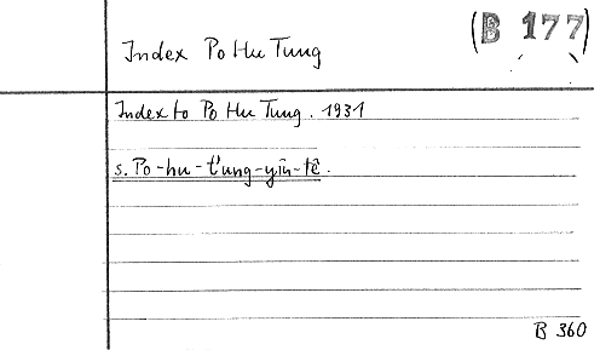 Index Po Hu Tung
(B 177)
Index to Po Hu Tung. 1931
s. Po-hu-t'ung-yin-tê.
B 360